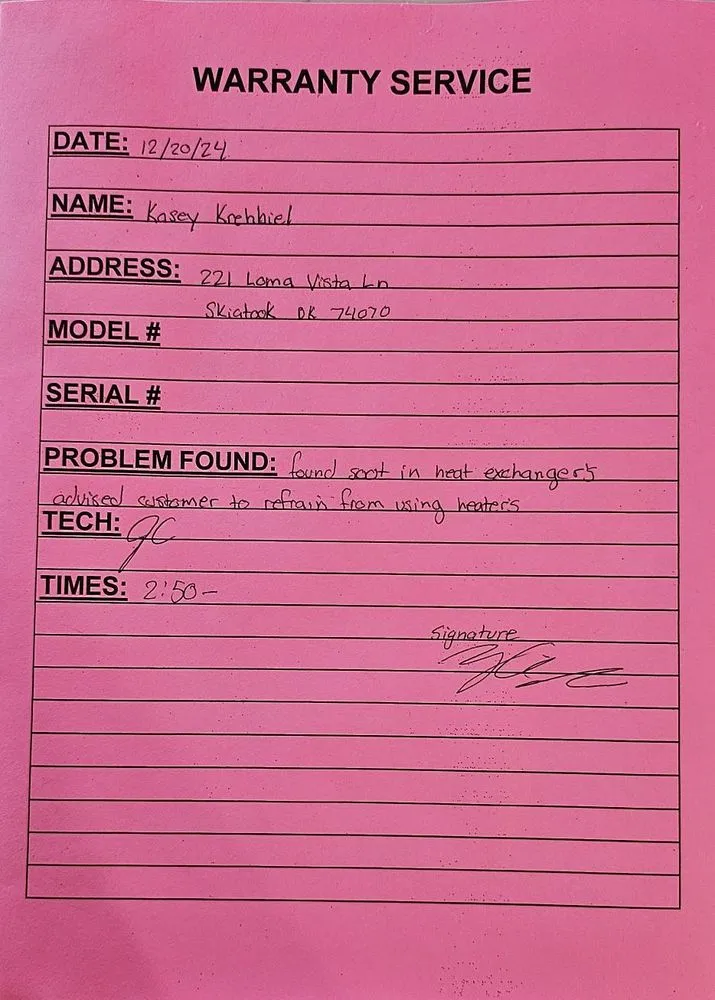 WARRANTY SERVICE
DATE: 12/20/24
NAME: Kasey Krehbiel
ADDRESS: 221 Loma Vista Ln
Skiatook OK 74070
MODEL #
SERIAL #
PROBLEM FOUND: found soot in heat exchanger's
advised customer to refrain from using heater's
TECH: JC
TIMES: 2:50-
Signature